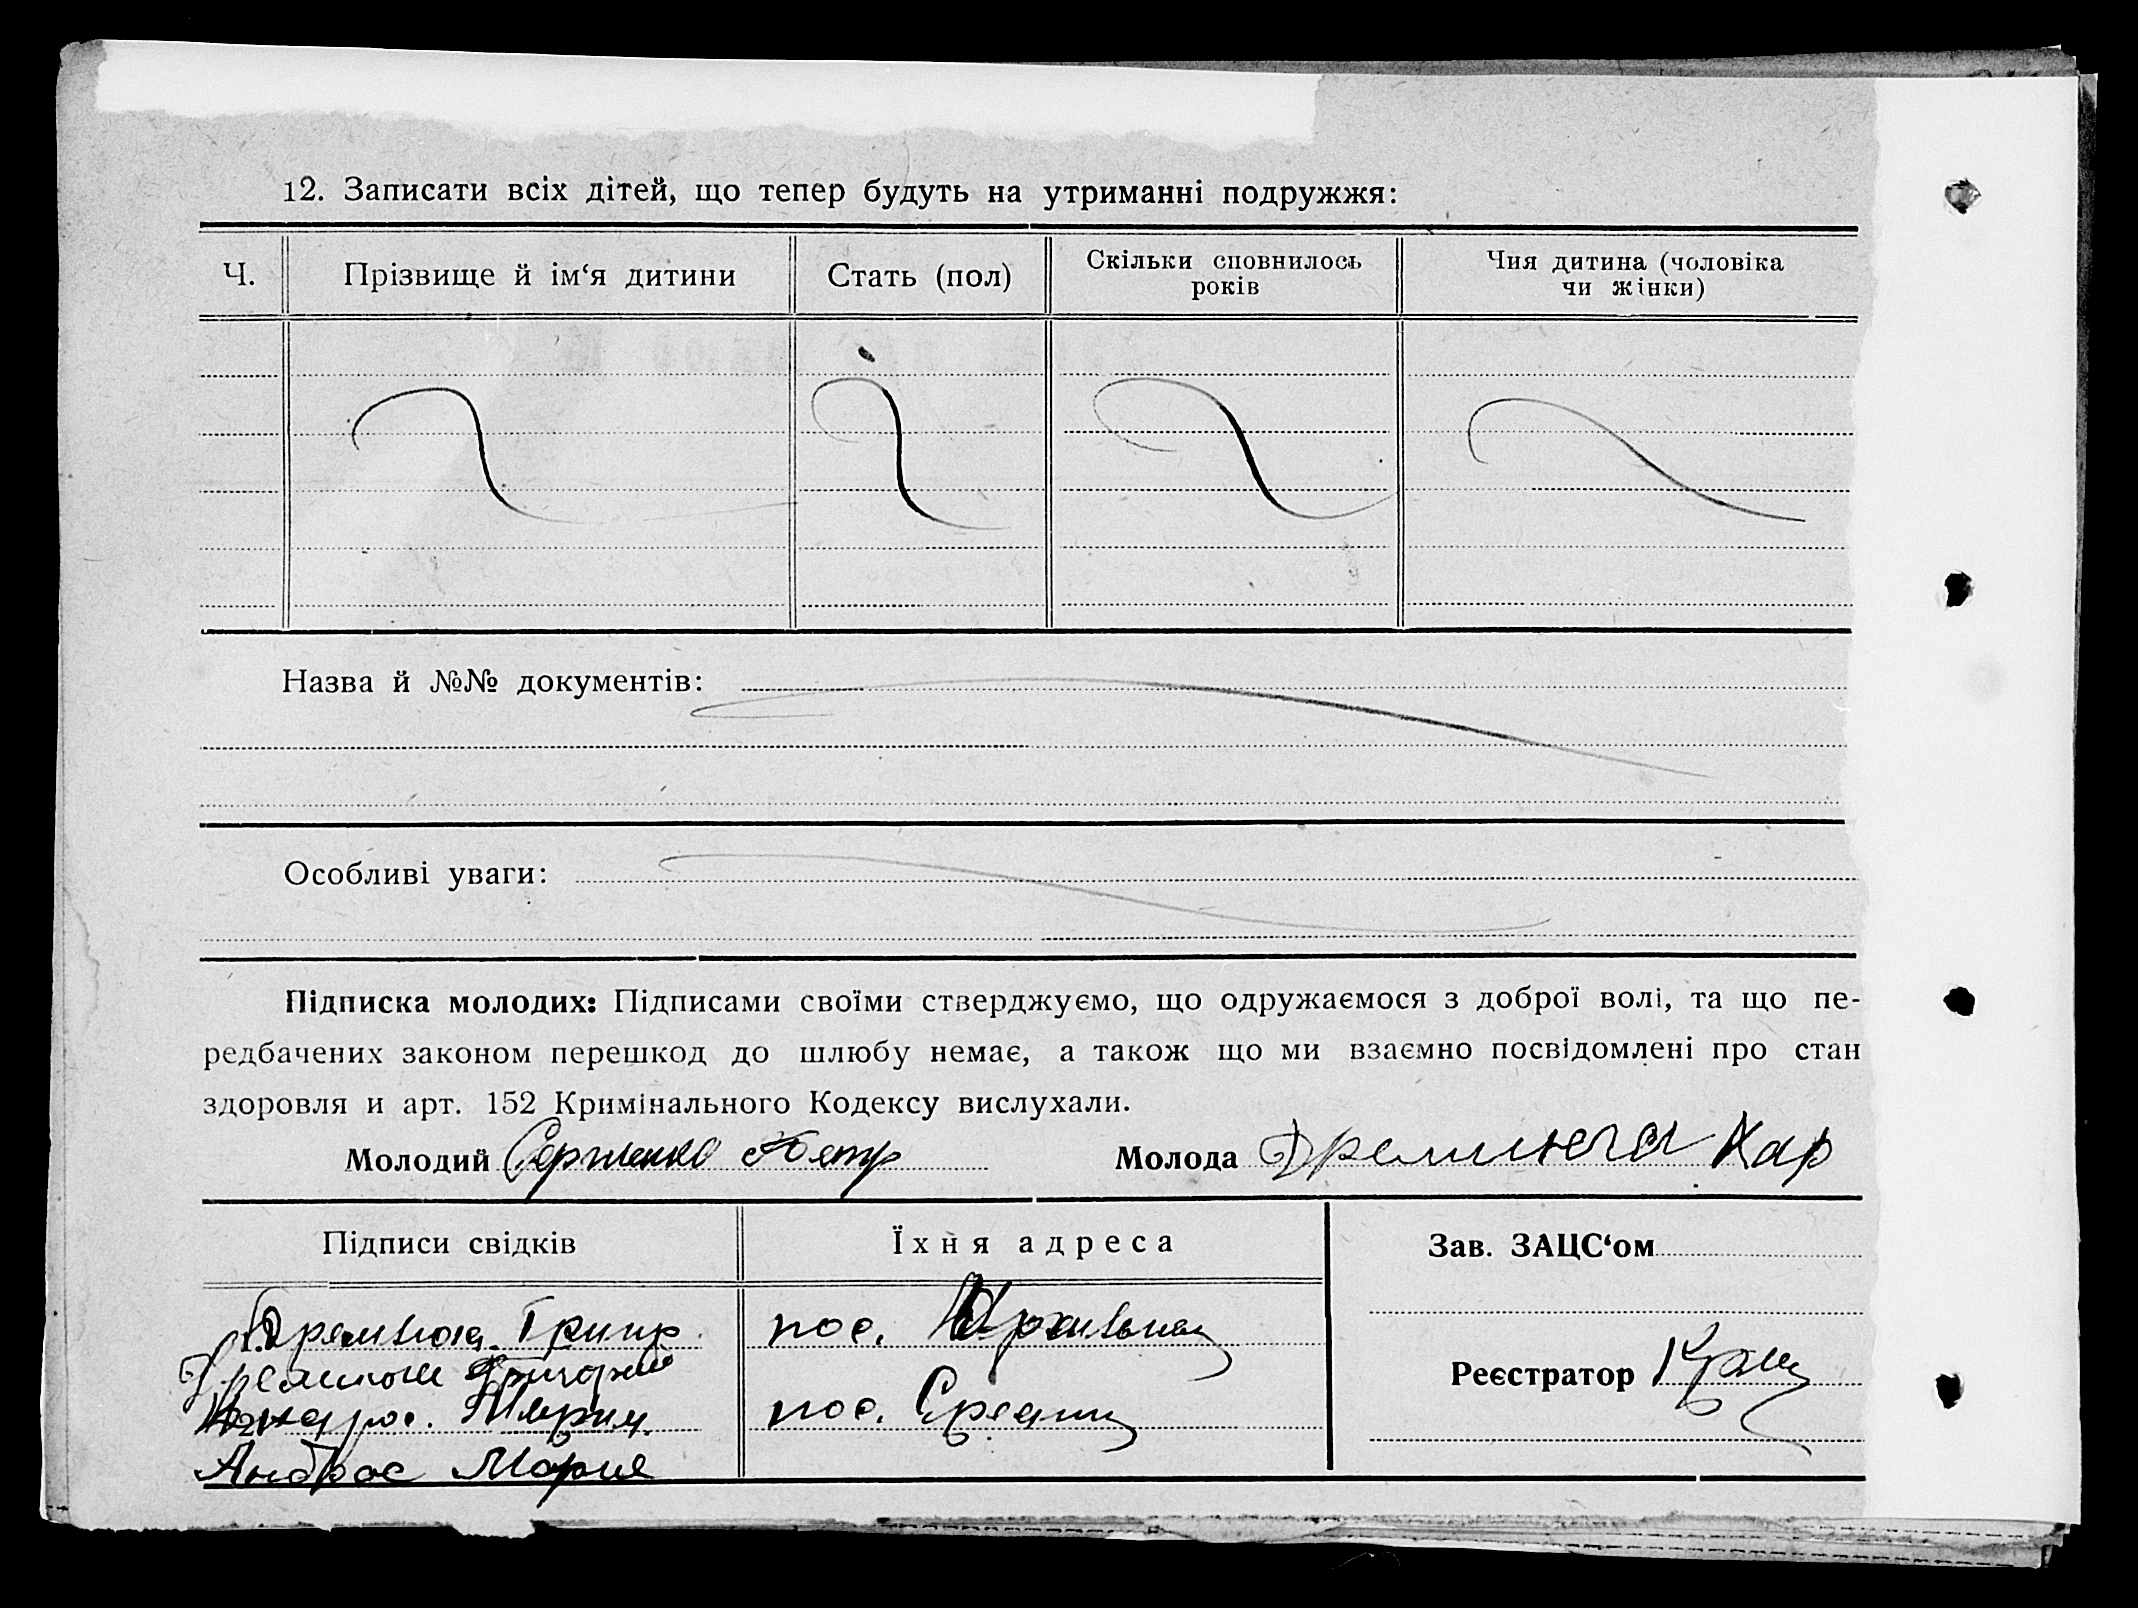 12. Записати всіх дітей, що тепер будуть на утриманні подружжя:
Ч. Прізвище й ім‘я дитини Стать (пол) Скільки сповнилось років Чия дитина (чоловіка чи жінки)
Назва й №№ документів:
Особливі уваги:
Підписка молодих: Підписами своїми стверджуємо, що одружаємося з доброї волі, та що пе-
редбачених законом перешкод до шлюбу немає, а також що ми взаємно посвідомлені про стан
здоровля и арт. 152 Кримінального Кодексу вислухали.
Молодий Сергиенко Петр Молода Дремлюга Хар
Підписи свідків Їхня адреса Зав. ЗАЦС‘ом
1. Дремлюга Григор. пос.
Григорий
Реєстратор
2. Мария пос.
Андрос Мария